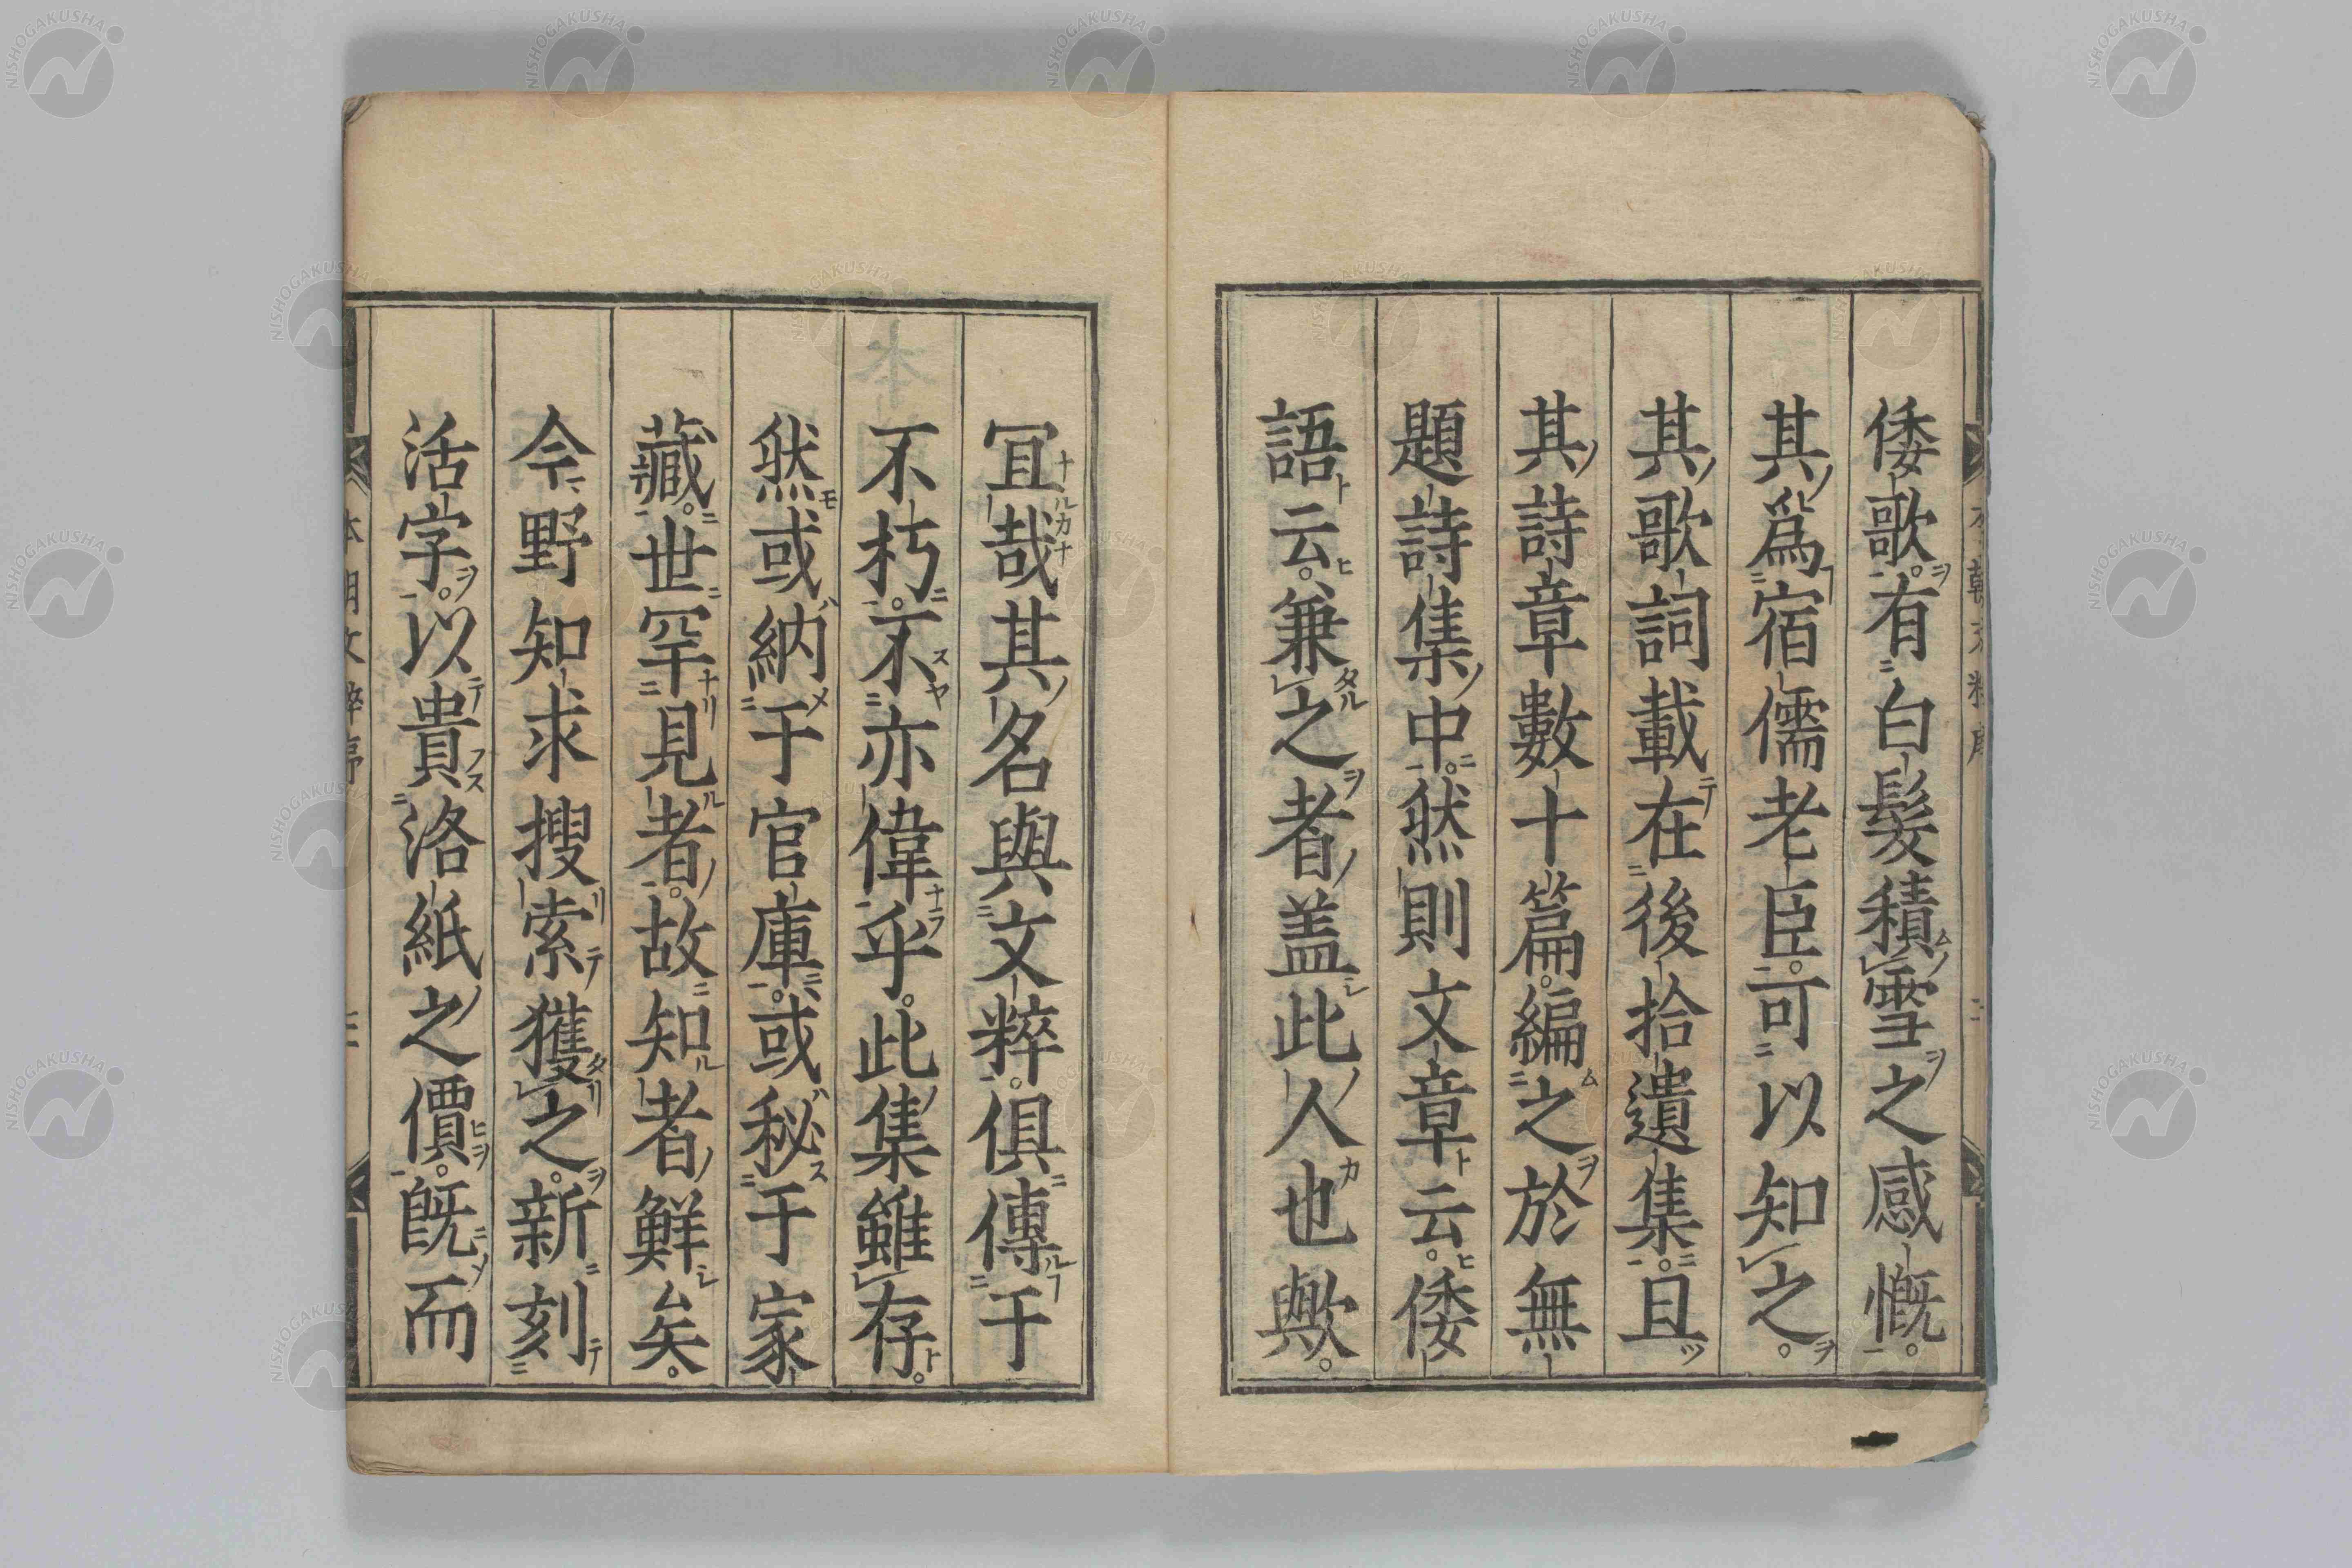 倭歌。有白髮積雪之感慨。
其爲宿儒老臣。可以知之。
其歌詞載在後拾遺集。且
其詩章數十篇。編之於無
題詩集中。然則文章云。倭
語云。兼之者。盖此人也歟。
冝哉其名與文粹。俱傳于
不朽。不亦偉乎。此集雖存。
然或納于官庫。或秘于家
藏。世罕見者。故知者鮮矣。
今野知求搜索獲之。新刻
活字。以貴洛紙之價。既而
NISHOGAKUSHA